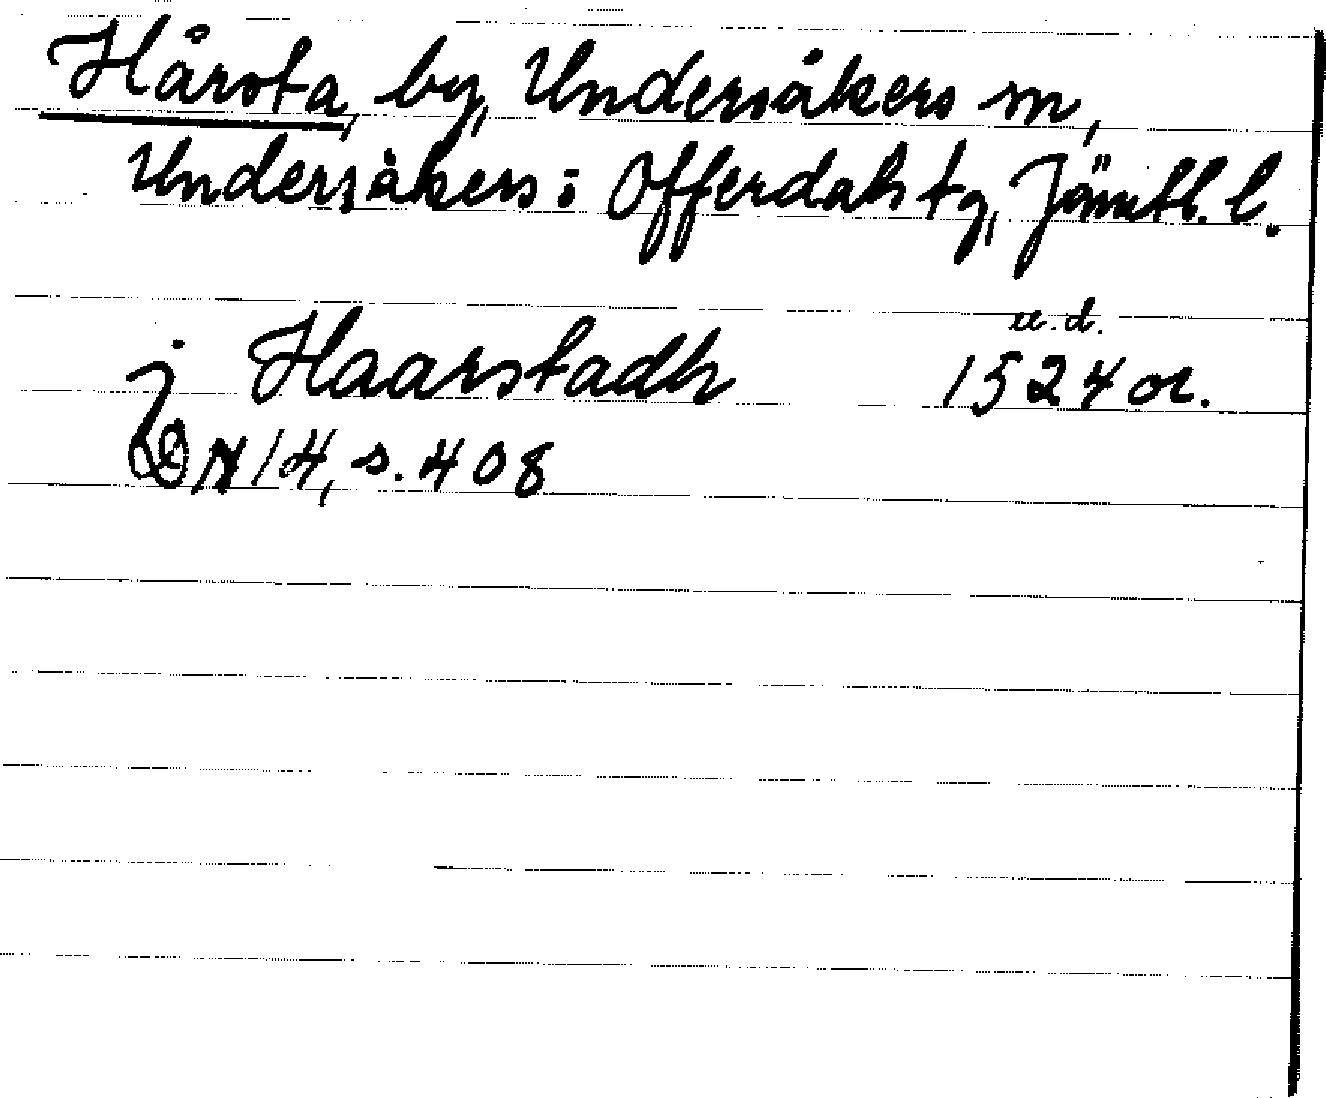 Hårsta, by, Undersåkers sn,
Undersåkers o Offerdals tg, Jämtl. l.
j Haarstadh u.d. 1524 or.
DN 14, s. 408